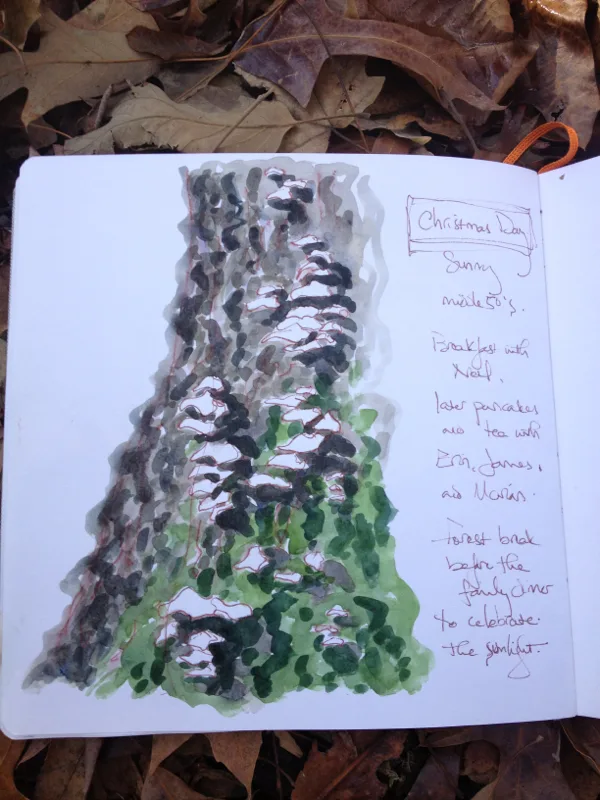 Christmas Day
Sunny
middle 50's.
Breakfast with
Neil.
later pancakes
and tea with
Erin, James,
and Marián.
Forest break
before the
family dinner
to celebrate
the sunlight.